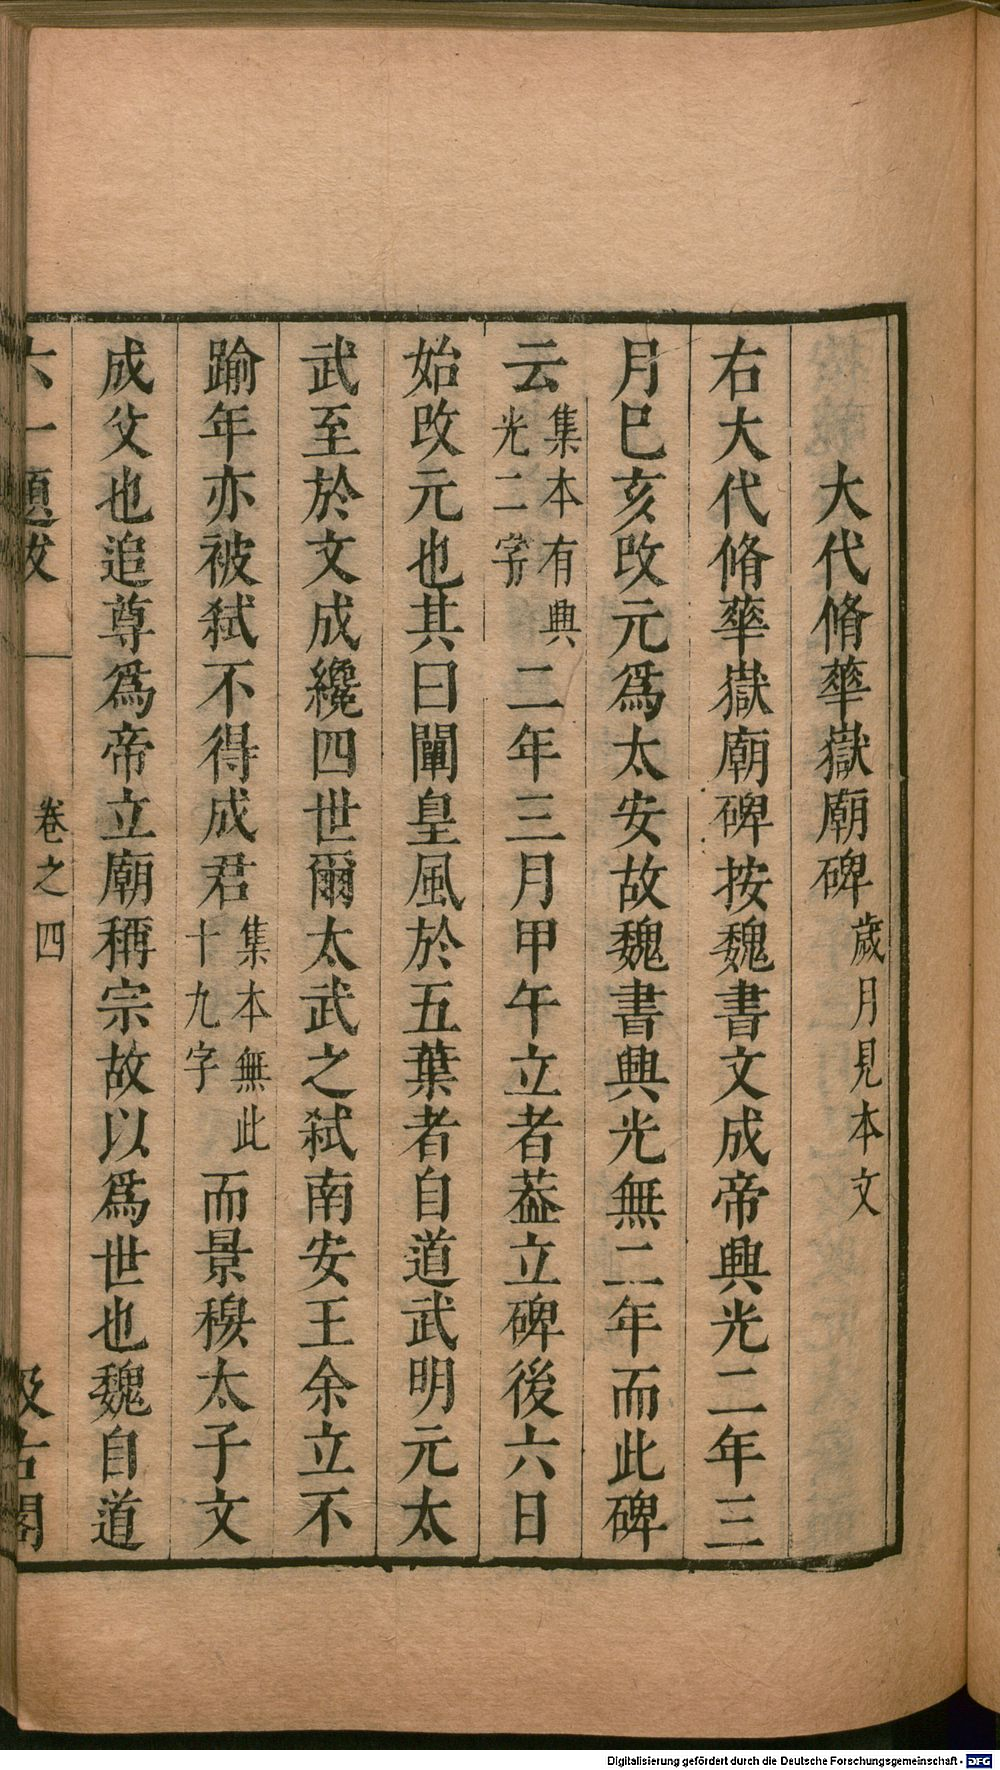 大代脩華嶽廟碑歲月見本文
右大代脩華嶽廟碑按魏書文成帝興光二年三
月巳亥改元爲太安故魏書興光無二年而此碑
云集本有興光二字二年三月甲午立者葢立碑後六日
始改元也其曰闡皇風於五葉者自道武明元太
武至於文成纔四世爾太武之弑南安王余立不
踰年亦被弑不得成君集本無此十九字而景穆太子文
成父也追尊爲帝立廟稱宗故以爲世也魏自道
六一題跋
卷之四
汲古閣
Digitalisierung gefördert durch die Deutsche Forschungsgemeinschaft - DFG